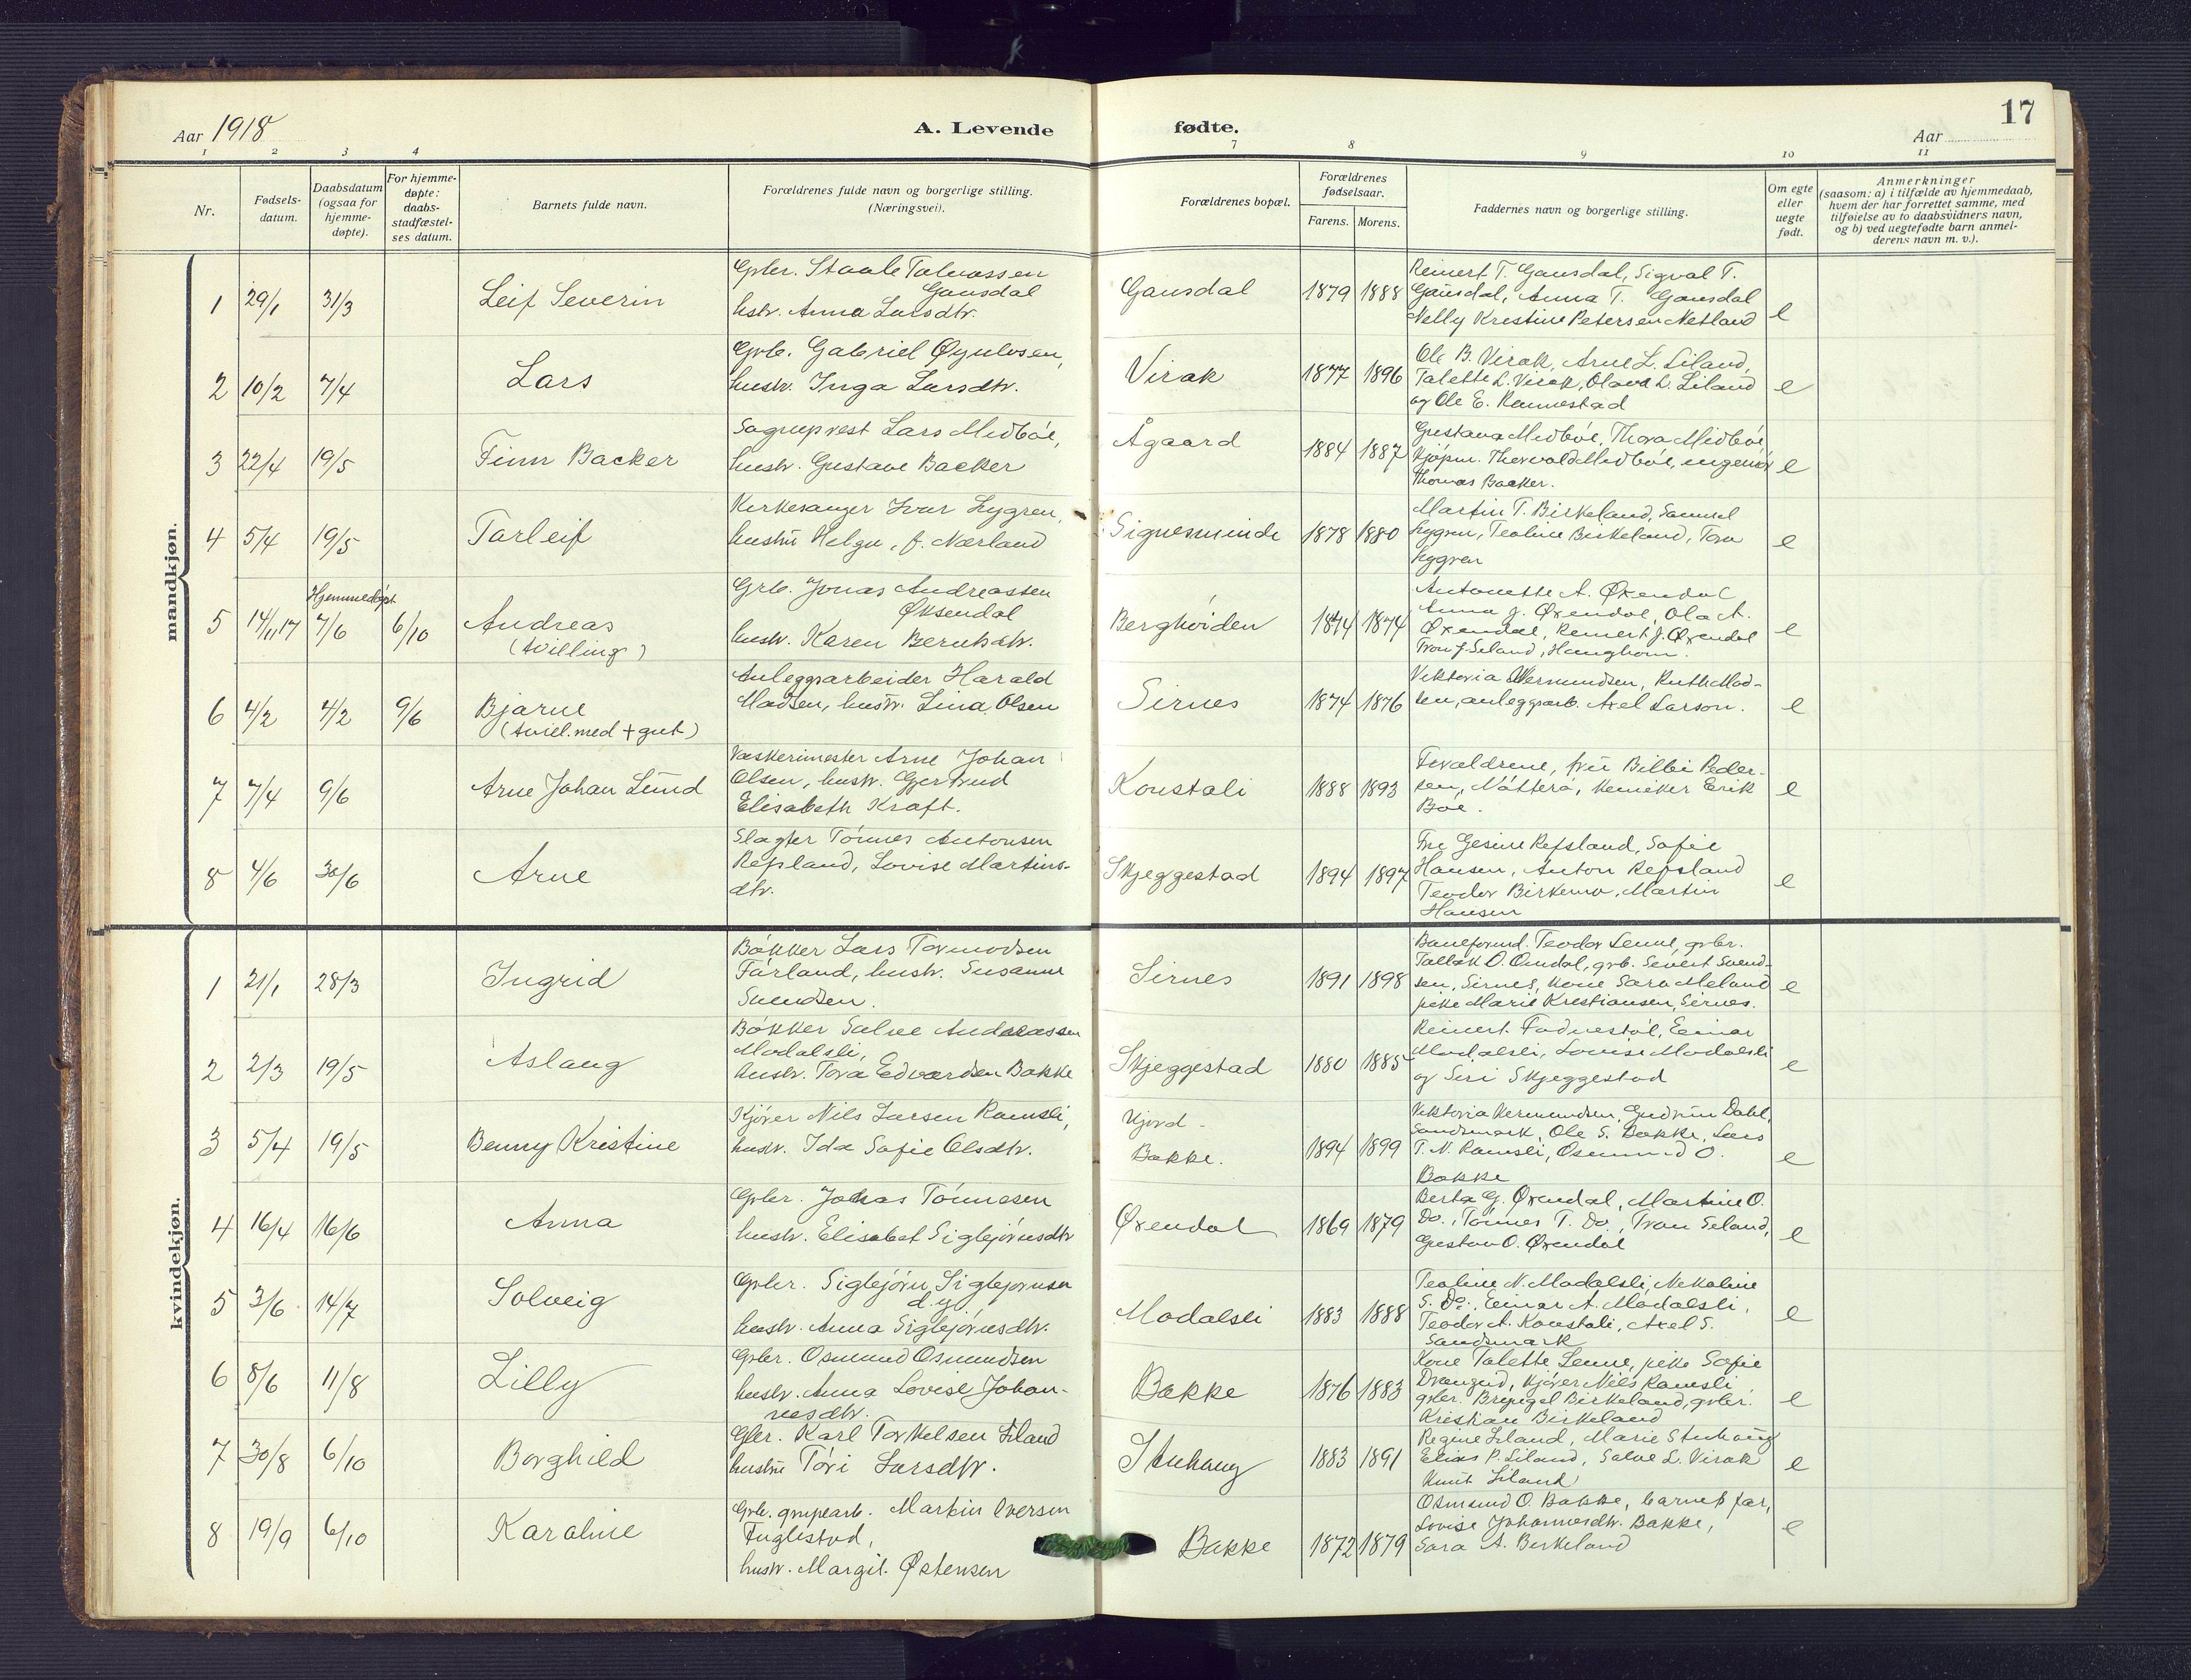 17
Aar 1918
A. Levende
fødte.
Aar
1 2 3 4 7 8 9 10 11
Nr.
Fødsels-
datum.
Daabsdatum
(ogsaa for
hjemme-
døpte).
For hjemme-
døpte:
daabs-
stadfæstel-
ses datum.
Barnets fulde navn.
Forældrenes fulde navn og borgerlige stilling.
(Næringsvei).
Forældrenes bopæl.
Forældrenes
fødselsaar.
Farens. Morens.
Faddernes navn og borgerlige stilling.
Om egte
eller
uegte
født.
Anmerkninger
(saasom: a) i tilfælde av hjemmedaab,
hvem der har forrettet samme, med
tilføielse av to daabsvidners navn,
og b) ved uegtefødte barn anmel-
derens navn m. v.).
mandkjøn.
1 29/1 31/3 Leif Severin
Gbr. Staale Talvassen
Gausdal
hstr. Anna Larsdtr.
Gausdal 1879 1888
Reinert T. Gausdal, Sigval T.
Gausdal, Anna T. Gausdal
Nelly Kristine Petersen Netland
e
2 10/2 7/4 Lars
Grb. Gabriel
hustr. Inga Larsdtr.
Virak 1877 1896
Ole B. Virak, Arne L. Liland,
Talette L. Virak, Olava L. Liland
og Ole E. Rannestad
e
3 22/4 19/5 Finn Backer
Lars Medbøe,
hustr. Gustava Backer
Ågaard 1884 1887
Gustava Medbøe, Thora Medbøe
kjøpm. Thorvald Medbøe, ingeniør
Thomas Backer.
e
4 5/4 19/5 Tarleif
Kirkesanger Ivar Lygren,
hustru Helga, f. Nærland
Signesminde 1878 1880
Martin T. Birkeland, Samuel
Lygren, Teoline Birkeland, Tora
Lygren
e
Hjemmedøpt
5 14/11 17 7/6 6/10 Andreas
(tvilling)
Grb. Jonas Andreassen
Øksendal
hustr. Karen Berntsdtr.
Berghöiden 1874 1874
Antonette A. Øxendal
Anna J. Øxendal, Ola A.
Øxendal, Reinert J. Øxendal
Tron J. Seland, Haughom.
e
6 4/2 4/2 9/6 Bjarne
(tvill. med + gut)
Anleggsarbeider Harald
Madsen, hustr. Lina Olsen
Sirnes 1874 1876
Viktoria Vermundsen, Ruth Mad-
sen, anleggsarb. Axel Larson.
e
7 7/4 9/6 Arne Johan Lund
Vaskerimester Arne Johan
Olsen, hustr. Gjertrud
Elisabeth Kraft.
Konstali 1888 1893
Forældrene, fru Bilbei Peder-
sen, Nötterö, kemiker Erik
Böe.
e
8 4/6 30/6 Arne
Slagter Tönnes Antonsen
Refsland, Lovise Martins-
dtr.
Skjeggestad 1894 1897
Fru Gesine Refsland, Sofie
Hansen, Anton Refsland
Teodor Birkemo, Martin
Hansen
e
kvindekjøn.
1 21/1 28/3 Ingrid
Bökker Lars Tormodsen
Färland, hustr. Susanne
Svendsen.
Sirnes 1891 1898
Baneformd. Teodor Lenne, gbr.
Tallak O. Omdal, grb. Severt Svend-
sen, Sirnes, kone Sara Meland
pike Marie Kristiansen, Sirnes.
e
2 2/3 19/5 Aslaug
Bökker Salve Andreassen
Modalsli,
hustr. Tora Edvardsen Bakke
Skjeggestad 1880 1885
Reinert Fodnestøl, Einar
Modalsli, Lovise Modalsli
og Siri Skjeggestad
e
3 5/4 19/5 Benny Kristine
Kjörer Nils Larsen Ramsli,
hustr. Ida Sofie Olsdtr.
Bakke. 1894 1899
Viktoria Vermundsen, Gudrun Dahl,
Sandsmark, Ole S. Bakke, Lars
T. N. Ramsli, Osmund O.
Bakke
e
4 16/4 16/6 Anna
Gbr. Johas Tönnesen
hustr. Elisabet Sigbjörnsdtr
Øxendal 1869 1879
Berta G. Øxendal, Martine O.
Do., Tönnes T. Do., Tron Seland,
Gustav O. Øxendal
e
5 3/6 14/7 Solveig
Gbr. Sigbjörn Sigbjørnsen
d.y.
hustr. Anna Sigbjörnsdtr.
Modalsli 1883 1888
Teoline N. Modalsli, Nikoline
S. Do., Einar A. Modalsli,
Teodor A. Konstali, Axel S.
Sandsmark
e
6 8/6 11/8 Lilly
Gbr. Osmund Osmundsen
hustr. Anna Lovise Johan-
nesdtr.
Bakke 1876 1883
Kone Talette Lenne, pike Sofie
Drangeid, kjörer Nils Ramsli
gbr. Bryngel Birkeland, gbr.
Kristian Birkeland
e
7 30/8 6/10 Borghild
Gbr. Karl Torkelsen Liland
hustru Töri Larsdtr.
Stuhaug 1883 1891
Regine Liland, Marie Stuhaug
Elias P. Liland, Salve L. Virak
Knut Liland
e
8 19/9 6/10 Karoline
Grb. grupearb. Martin Iversen
Fuglestad,
hustr. Margit Østensen
Bakke 1872 1879
Osmund O. Bakke, barnets far,
Lovise Johannesdtr. Bakke,
Sara A. Birkeland
e